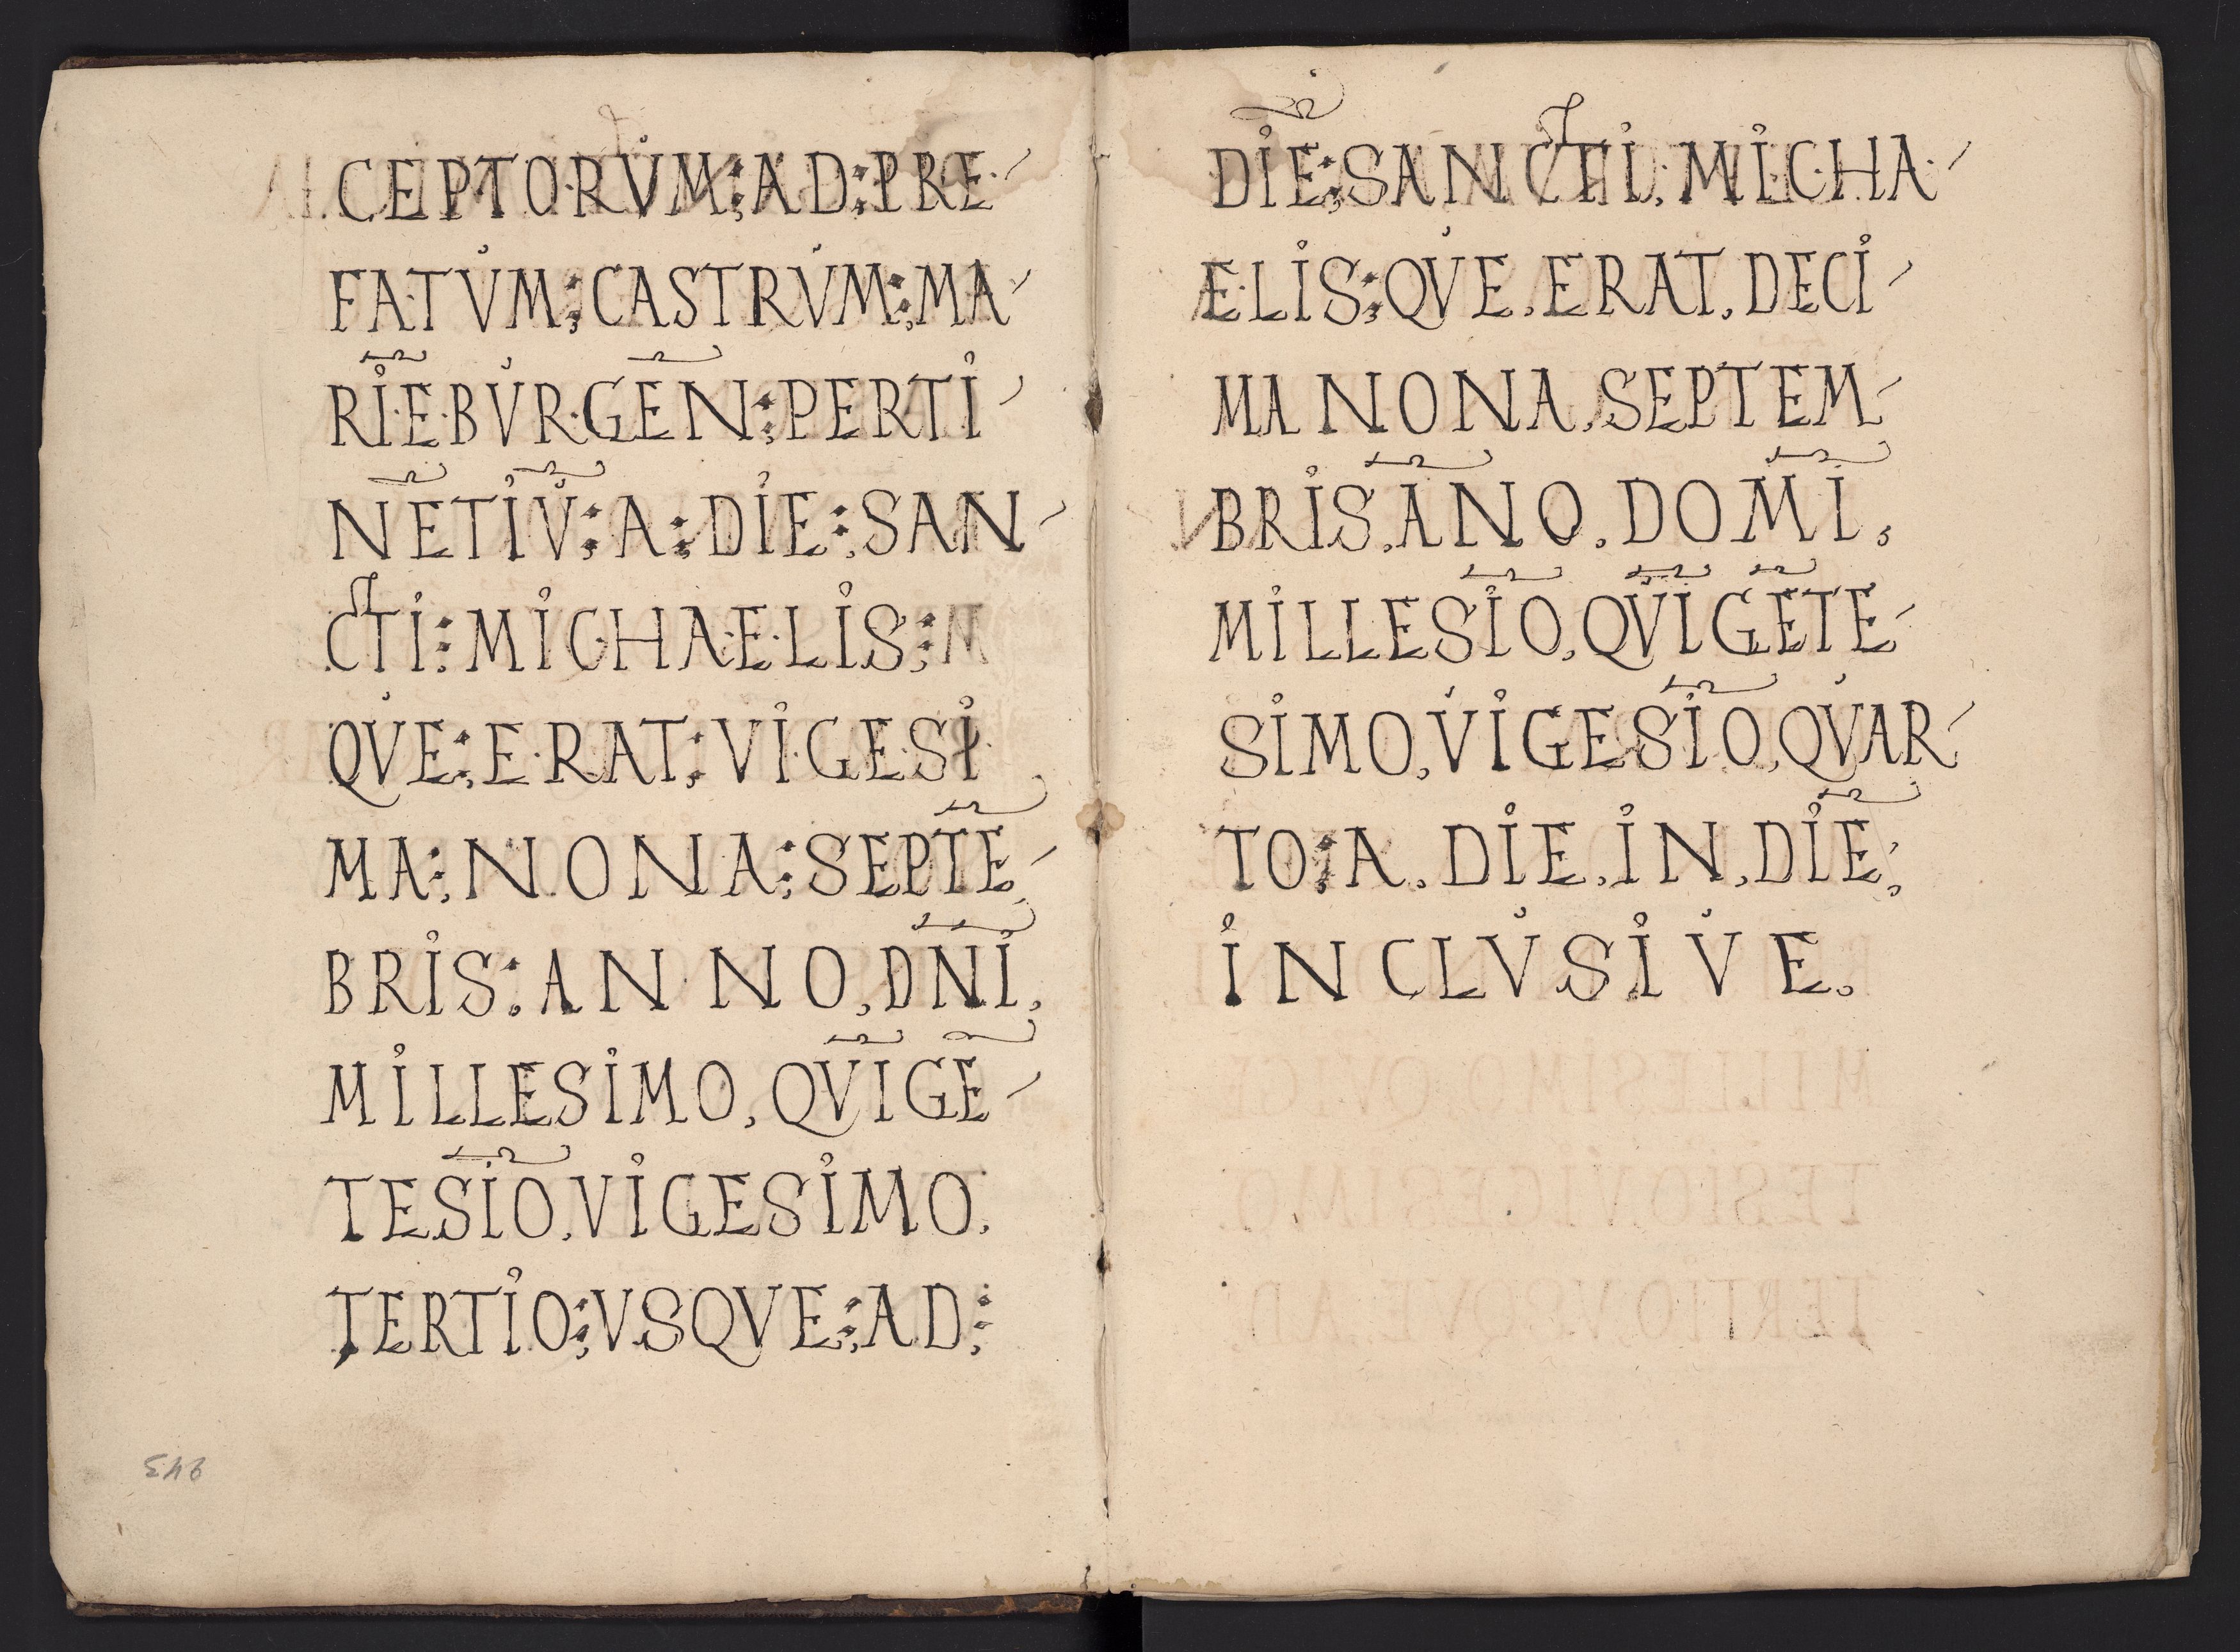 CEPTORVM : AD : PRE-
FATVM : CASTRVM : MA-
RIEBVRGEN̄ : PERTI-
NĒTIV̄ : A : DIE : SAN-
CTI : MICHAELIS : M
QVE : ERAT : VIGESI
MA : NONA : SEPTĒ-
BRIS : ANNO, DN̄I,
MILLESIMO, QV̄IGĒ-
TESĪO, VIGESIMO.
TERTIO : VSQVE : AD :
943
DIE : SANCTI, MICHA-
ELIS : QVE, ERAT, DECI-
MA NONA, SEPTEM-
BRIS, AN̄O, DOM̄I,
MILLESĪO, QV̄IGĒTE-
SIMO, VIGESĪO, QVAR-
TO : A, DIE, IN, DIĒ ;
INCLVSIVE.